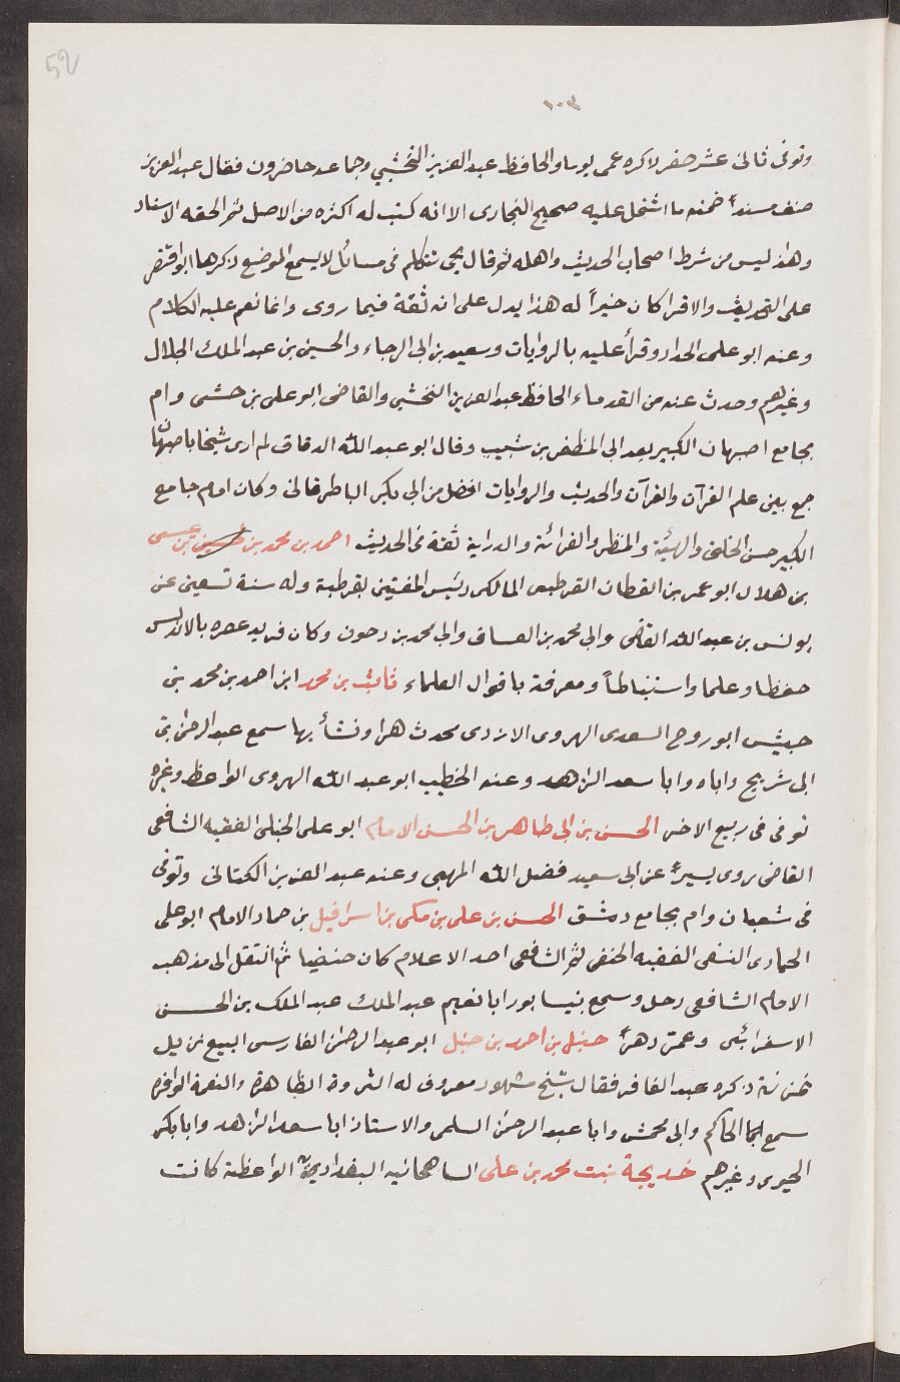 52
١٠٣
وتوفى ثانى عشر صفر لاكره عمى يوما والحافظ عبد العزيز النخشبي وجماعه حاضرون فقال عبد العزيز
صنف مسنداً ضمنه ما اشتمل عليه صحيح البخارى الا انه كتب له اكثره من الاصل ثم الحقه الاسناد
وهذا ليس من شرط اصحاب الحديث واهله ثم قال يحى تتكلم فى مسائل لا يسمع الموضع ذكرها لو اقتصر
على التحديث والاقرا كان خيراً له هذا يدل على انه ثقة فيما روى وانما نعم عليه الكلام
وعنه ابو على الحداد وقرأ عليه بالروايات وسعيد بن ابى الرجاء والحسين بن عبد الملك الخلال
وغيرهم وحدث عنه من القدماء الحافظ عبد العزيز النخشبي والقاضى ابو على بن خشى وام
بجامع اصبهان الكبير بعد ابى المظفر بن شبيب وقال ابو عبد الله الدقاق لم ارى شيخا باصبهان
جمع بين علم القرآن والقرآن والحديث والروايات افضل من ابى بكر الباطرقانى وكان امام جامع
الكبير حسن الخلق والهيئة والمنظر والقرائة والدراية ثقة فى الحديث احمد بن محمد بن عيسى
بن هلال ابو عمر بن القطان القرطبى المالكى رئيس المفتين بقرطبة وله سنة تسعين عن
يونس بن عبد الله القاضى وابى محمد بن الساق وابى محمد بن دحون وكان فريد عصره بالاندلس
حفظا وعلما واستنباطاً ومعرفة باقوال العلماء ثابت بن محمد ابن احمد بن محمد بن
حبيش ابو روح السعدى الهروى الازدى محدث هراو ونشأ بها سمع عبد الرحمن بن
ابى شريح واباه وابا سعد الزاهد وعنه الخطيب ابو عبد الله الهروى الواعظ وغيره
توفى فى ربيع الاخر الحسن بن ابى طاهر بن الحسن الامام ابو على الختلى الفقيه الشافعى
القاضى روى يسيراً عن ابى سعيد فضل الله المهبى وعنه عبد العزيز الكتانى وتوفى
فى شعبان وام بجامع دمشق الحسن بن على بن مكى بن اسرافيل بن حماد الامام ابو على
الحمادى النسفى الفقيه الحنفى ثم الشافعى احد الاعلام كان حنفيا ثم انتقل الى مذهب
الامام الشافعى رحل وسمع بنيسابور ابا نعيم عبد الملك عبد الملك بن الحسن
الاسفرائنى وعمّر دهراً حنبل بن احمد بن حنبل ابو عبد الرحمن الفارسى البيع نزيل
غزنة ذكره عبد الغافر فقال شيخ مشهور معروف له الثروة الظاهرة والنعمة الوافره
سمع الحاكم وابى محمش وابا عبد الرحمن السلمى والاستاذ ابا سعد الزاهد وابا بكر
الحيرى وغيرهم خديجة بنت محمد بن على الساهجانيه البغدادية الواعظة كانت